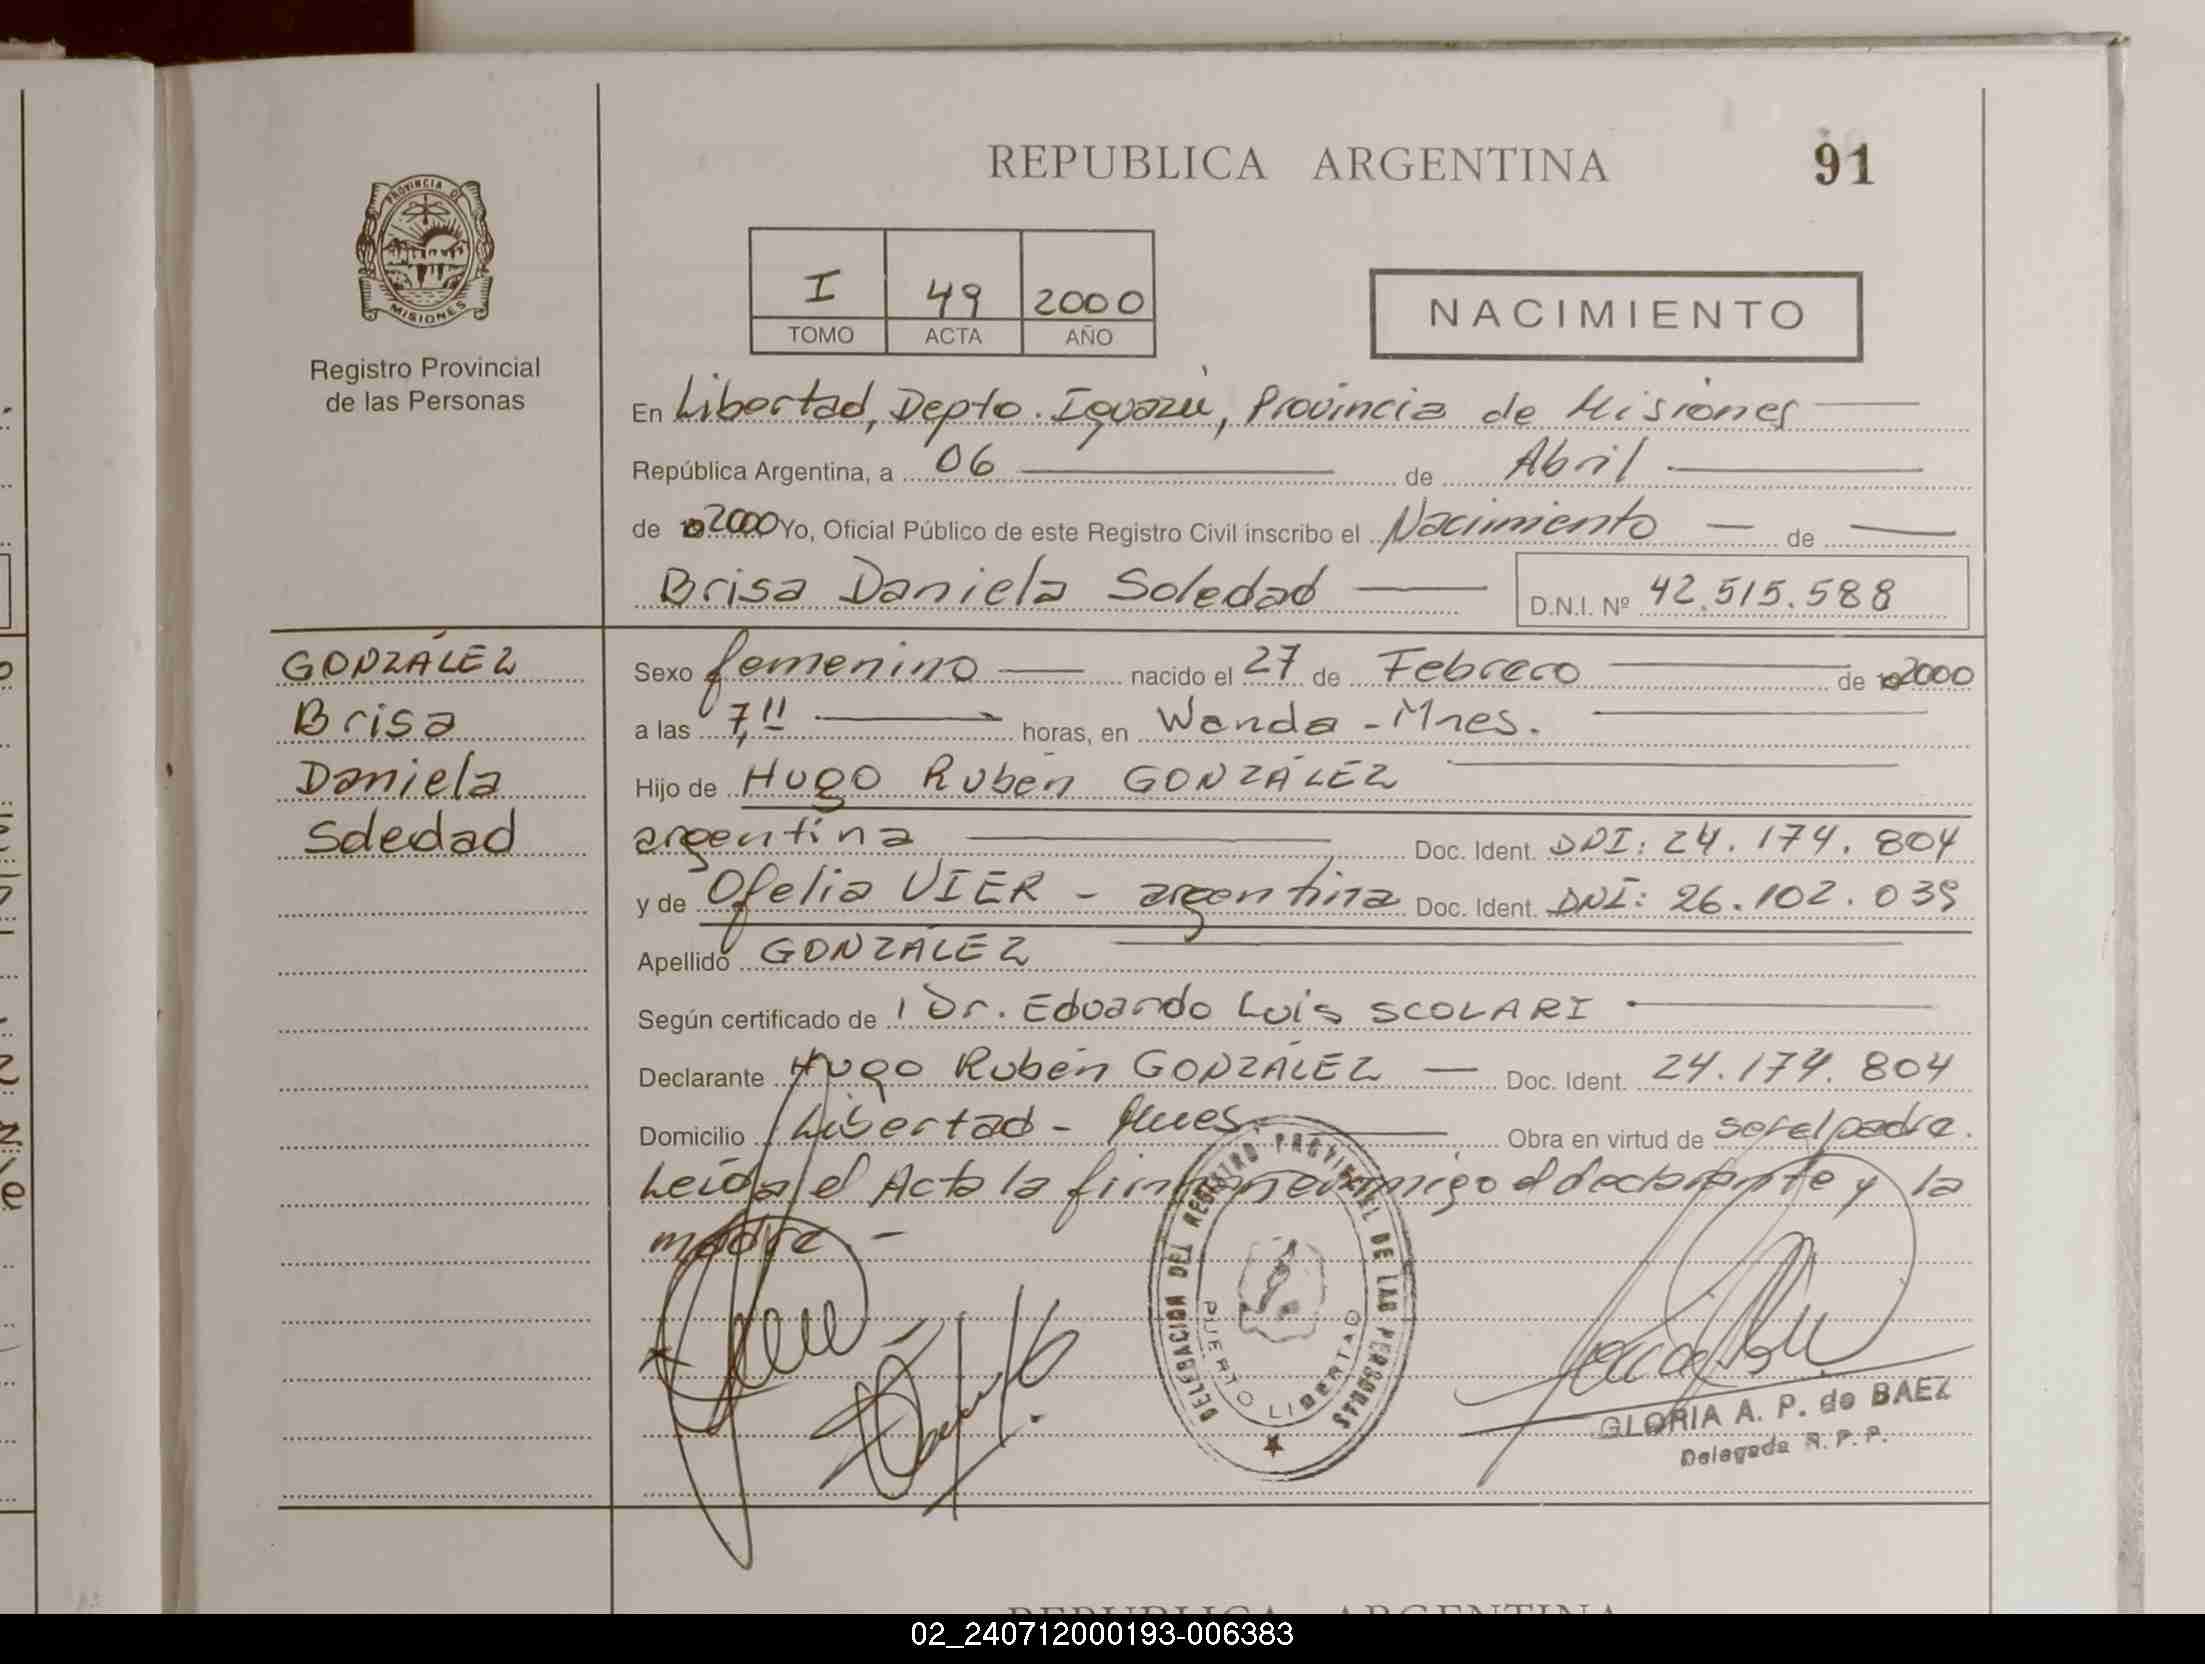 REPUBLICA ARGENTINA
91
PROVINCIA DE
MISIONES
Registro Provincial
de las Personas
I 49 2000
TOMO ACTA AÑO
NACIMIENTO
En Libertad, Depto. Iguazú, Provincia de Misiones
República Argentina, a 06 de Abril
de 2000 Yo, Oficial Público de este Registro Civil inscribo el Nacimiento de
Brisa Daniela Soledad D.N.I. Nº 42.515.588
GONZÁLEZ
Brisa
Daniela
Soledad
Sexo femenino nacido el 27 de Febrero de 2000
a las 7,11 horas, en Wanda - Mnes.
Hijo de Hugo Rubén GONZÁLEZ
argentina Doc. Ident. DNI: 24.174.804
y de Ofelia VIER - argentina Doc. Ident. DNI: 26.102.039
Apellido GONZÁLEZ
Según certificado de Dr. Eduardo Luis SCOLARI
Declarante Hugo Rubén GONZÁLEZ Doc. Ident. 24.174.804
Domicilio Libertad - Mnes. Obra en virtud de ser el padre.
Leída el Acta la firman conmigo el declarante y la
madre. -
DELEGACION DEL REGISTRO PROVINCIAL DE LAS PERSONAS
PUERTO LIBERTAD
GLORIA A. P. de BAEZ
Delegada R. P. P.
REPUBLICA ARGENTINA
02_240712000193-006383